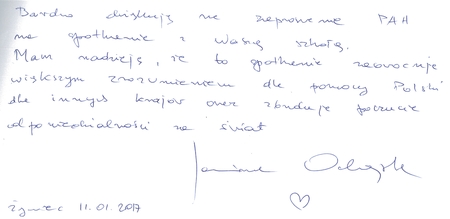 Bardzo dziękuję za zaproszenie PAH
na spotkanie z Waszą szkołą.
Mam nadzieję, że to spotkanie zaowocuje
większym zrozumieniem dla pomocy Polski
dla innych krajów oraz zbuduje poczucie
odpowiedzialności za świat
Żywiec 11.01.2017